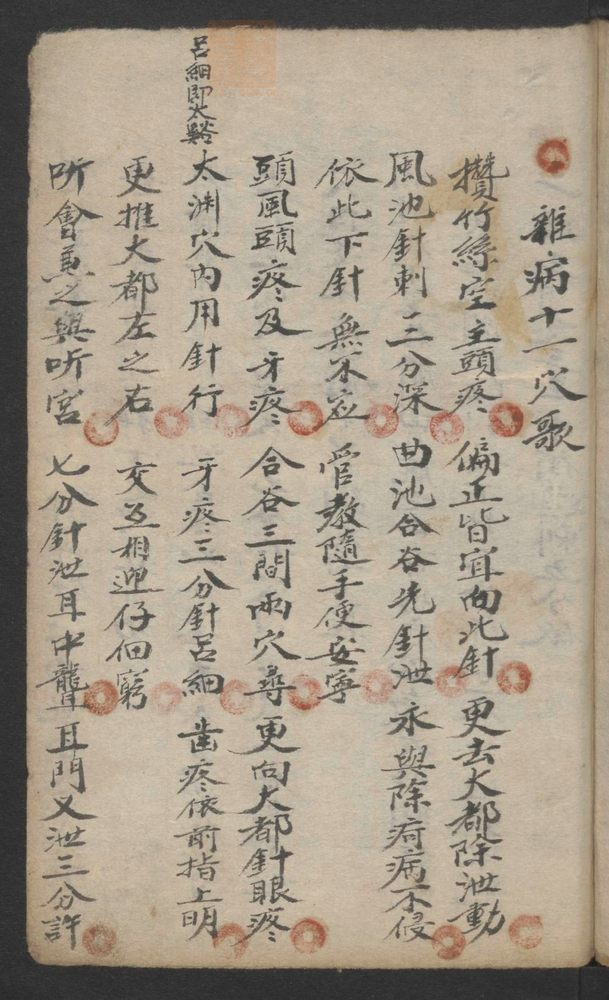 雜病十一穴歌
攢竹絲空主頭疼 偏正皆宜向此針 更去大都除泄動
風池針刺三分深 曲池合谷先針泄 永與除疴病不侵
依此下針無不應 管教隨手便安寧
頭風頭疼及牙疼 合谷三間兩穴尋 更向大都針眼疼
太渊穴內用針行 牙疼三分針呂細 齒疼依前指上明
呂細即太谿
更推大都左之右 交互相迎仔細窮
听會兼之與听宮 七分針泄耳中聾 耳門又泄三分許